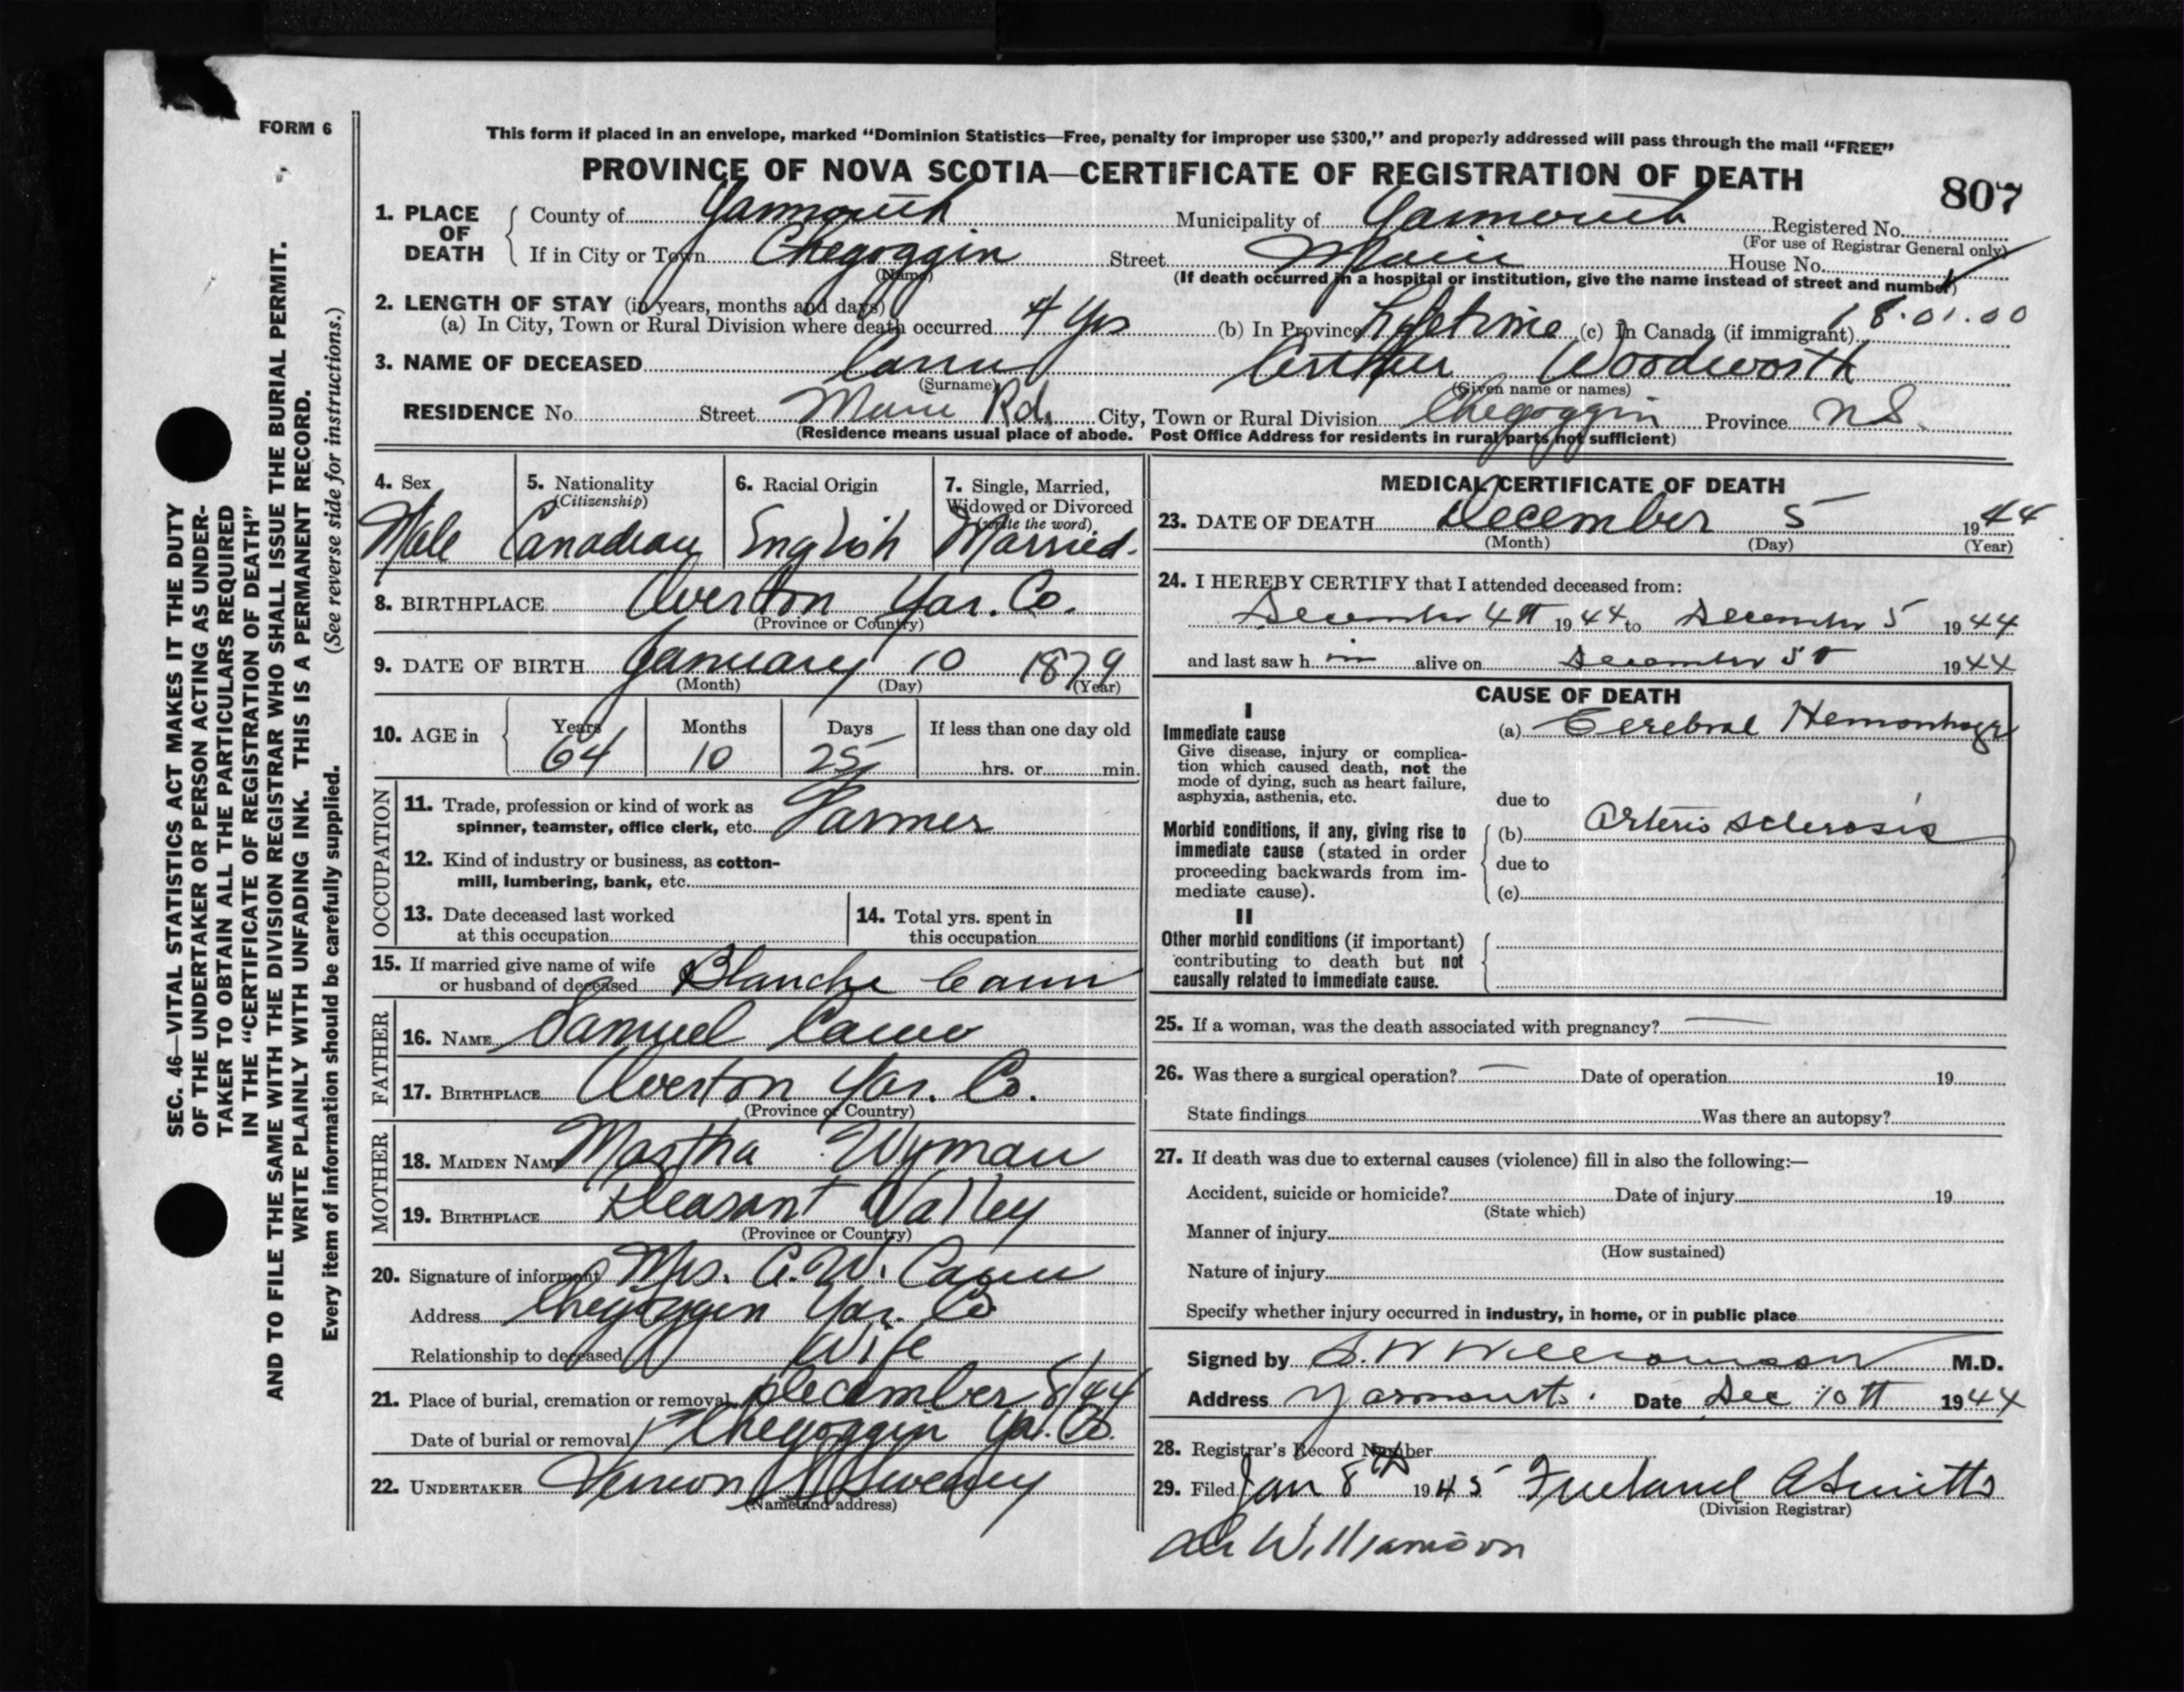 FORM 6
This form if placed in an envelope, marked “Dominion Statistics—Free, penalty for improper use $300,” and properly addressed will pass through the mail “FREE”
PROVINCE OF NOVA SCOTIA—CERTIFICATE OF REGISTRATION OF DEATH
807
1. PLACE OF DEATH
County of Yarmouth Municipality of Yarmouth Registered No.
(For use of Registrar General only)
If in City or Town Chegoggin Street Main House No.
(Name)
(If death occurred in a hospital or institution, give the name instead of street and number)
2. LENGTH OF STAY (in years, months and days)
(a) In City, Town or Rural Division where death occurred 4 Yrs (b) In Province Lifetime (c) In Canada (if immigrant) 18.01.00
3. NAME OF DECEASED Cann Arthur Woodworth
(Surname) (Given name or names)
RESIDENCE No. Street Main Rd. City, Town or Rural Division Chegoggin Province N.S.
(Residence means usual place of abode. Post Office Address for residents in rural parts not sufficient)
4. Sex
Male
5. Nationality
(Citizenship)
Canadian
6. Racial Origin
English
7. Single, Married,
Widowed or Divorced
(write the word)
Married.
8. BIRTHPLACE Overton Yar. Co.
(Province or Country)
9. DATE OF BIRTH January 10 1879
(Month) (Day) (Year)
10. AGE in
Years Months Days If less than one day old
64 10 25 hrs. or min.
OCCUPATION
11. Trade, profession or kind of work as
spinner, teamster, office clerk, etc. Farmer
12. Kind of industry or business, as cotton-
mill, lumbering, bank, etc.
13. Date deceased last worked
at this occupation
14. Total yrs. spent in
this occupation
15. If married give name of wife
or husband of deceased Blanche Cann
FATHER
16. NAME Samuel Cann
17. BIRTHPLACE Overton Yar. Co.
(Province or Country)
MOTHER
18. MAIDEN NAME Martha Wyman
19. BIRTHPLACE Pleasant Valley
(Province or Country)
20. Signature of informant Mrs. A. W. Cann
Address Chegoggin Yar. Co
Relationship to deceased Wife
21. Place of burial, cremation or removal December 8/44
Date of burial or removal Chegoggin Yar. Co.
22. UNDERTAKER Vernon Sweeny
(Name and address)
MEDICAL CERTIFICATE OF DEATH
23. DATE OF DEATH December 5 1944
(Month) (Day) (Year)
24. I HEREBY CERTIFY that I attended deceased from:
December 4th 1944 to December 5 1944
and last saw him alive on December 5th 1944
CAUSE OF DEATH
I
Immediate cause
Give disease, injury or complica-
tion which caused death, not the
mode of dying, such as heart failure,
asphyxia, asthenia, etc.
(a) Cerebral Hemorrhage
due to
Morbid conditions, if any, giving rise to
immediate cause (stated in order
proceeding backwards from im-
mediate cause).
(b) Arterio sclerosis
due to
(c)
II
Other morbid conditions (if important)
contributing to death but not
causally related to immediate cause.
25. If a woman, was the death associated with pregnancy?
26. Was there a surgical operation? Date of operation 19
State findings Was there an autopsy?
27. If death was due to external causes (violence) fill in also the following:—
Accident, suicide or homicide? Date of injury 19
(State which)
Manner of injury
(How sustained)
Nature of injury
Specify whether injury occurred in industry, in home, or in public place
Signed by S. W Williamson M.D.
Address Yarmouth. Date Dec 10th 1944
28. Registrar's Record Number
29. Filed Jan 8th 1945 Freeland A Smith
(Division Registrar)
Dr Williamson
SEC. 46—VITAL STATISTICS ACT MAKES IT THE DUTY
OF THE UNDERTAKER OR PERSON ACTING AS UNDER-
TAKER TO OBTAIN ALL THE PARTICULARS REQUIRED
IN THE “CERTIFICATE OF REGISTRATION OF DEATH”
AND TO FILE THE SAME WITH THE DIVISION REGISTRAR WHO SHALL ISSUE THE BURIAL PERMIT.
WRITE PLAINLY WITH UNFADING INK. THIS IS A PERMANENT RECORD.
Every item of information should be carefully supplied. (See reverse side for instructions.)